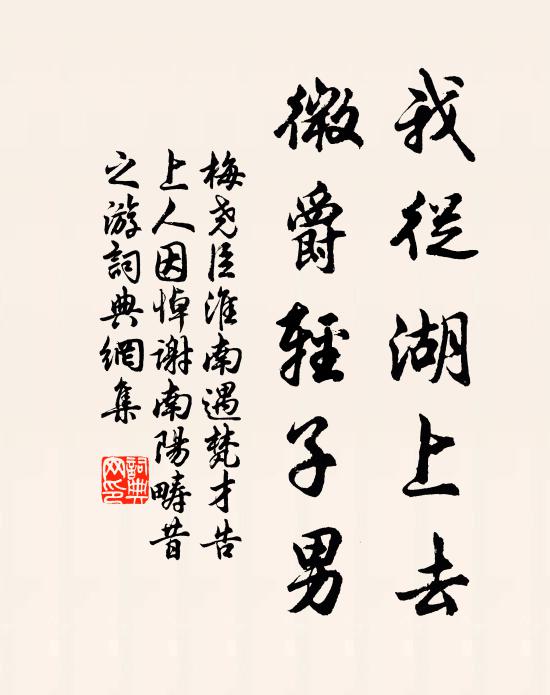 我從湖上去
微爵輕子男
梅尧臣淮南遇梵才告
上人因悼谢南陽疇昔
之游詞典網集
詞典网印